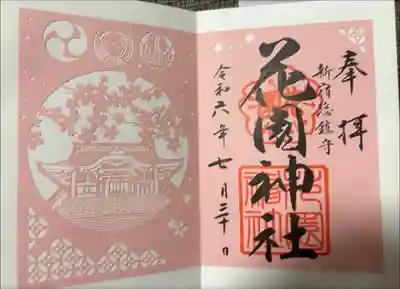 奉拝
新宿総鎮守
花園神社
令和六年七月三十日
花園神社